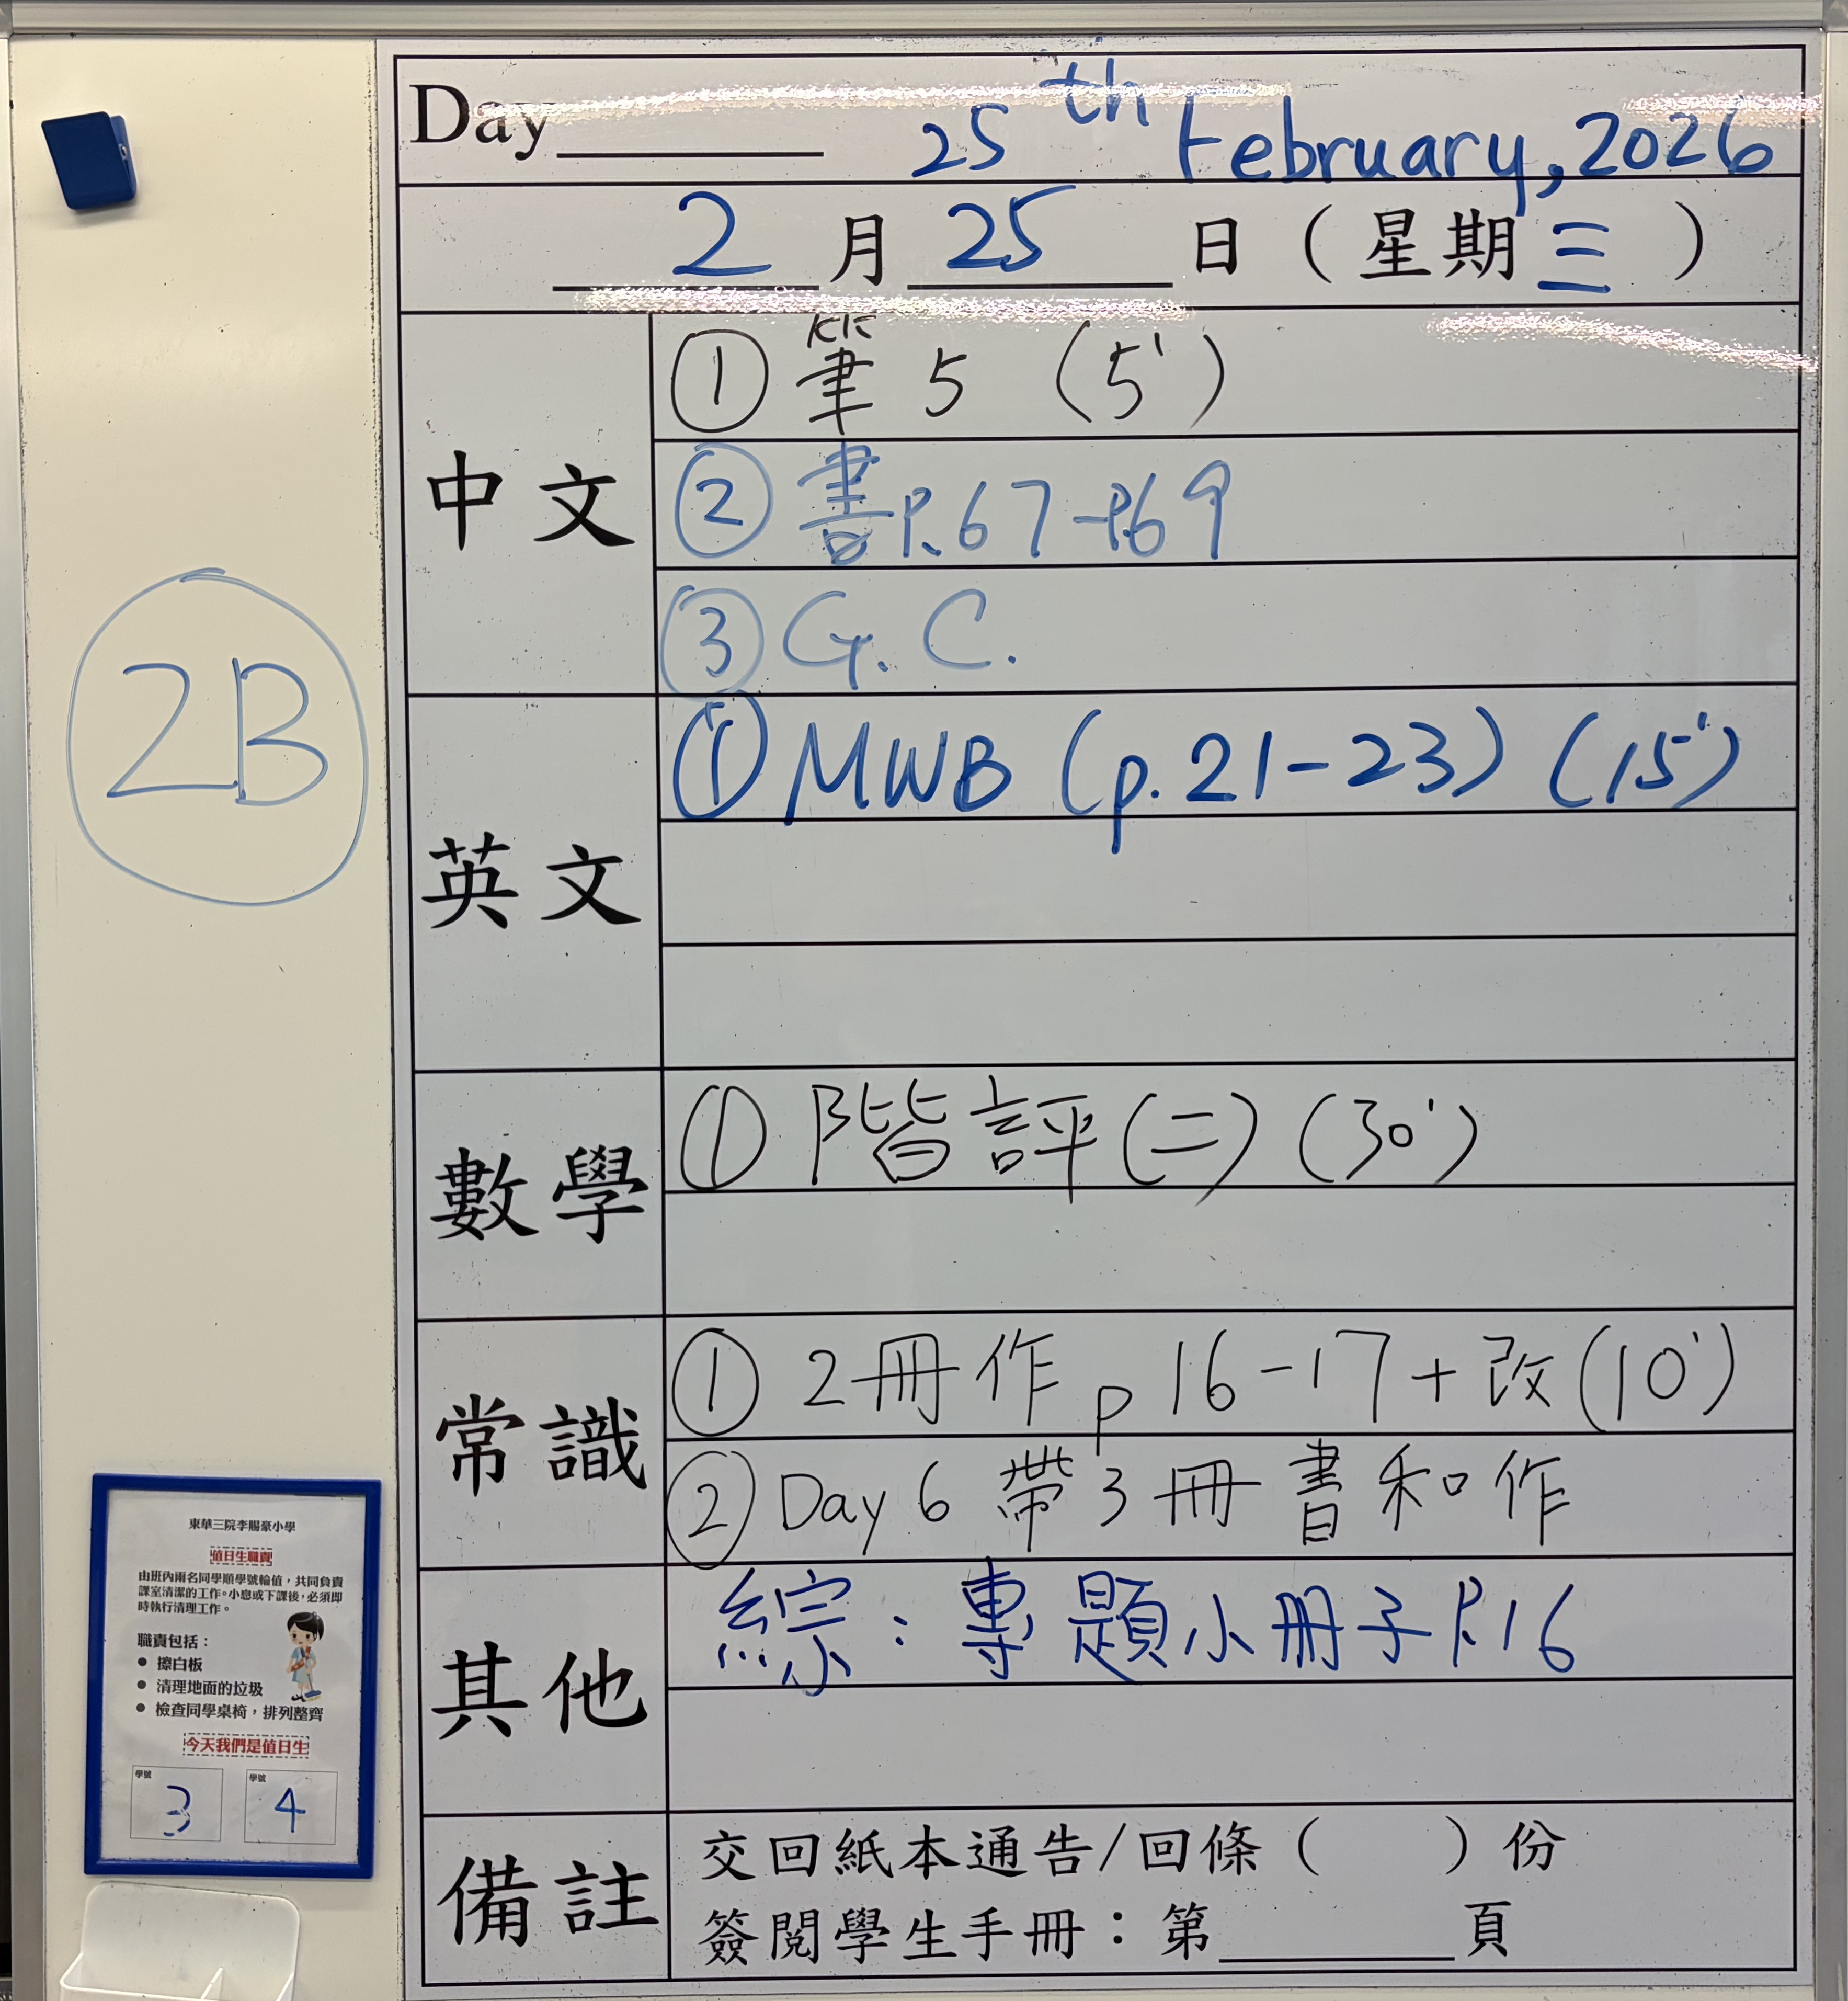 Day______ 25th February, 2026
2 月 25 日（星期三）
中文
① 筆 5 (5')
② 書 P.67-P.69
③ G.C.
英文
① MWB (p.21-23) (15')
數學
① 階評(二) (30')
常識
① 2冊作 p16-17+改(10')
② Day 6 帶3冊書和作
其他
綜：專題小冊子 P.16
備註
交回紙本通告/回條（　　）份
簽閱學生手冊：第______頁
2B
東華三院李賜豪小學
值日生職責
由班內兩名同學順學號輪值，共同負責
課室清潔的工作。小息或下課後，必須即
時執行清理工作。
職責包括：
● 擦白板
● 清理地面的垃圾
● 檢查同學桌椅，排列整齊
今天我們是值日生
學號 學號
3 4